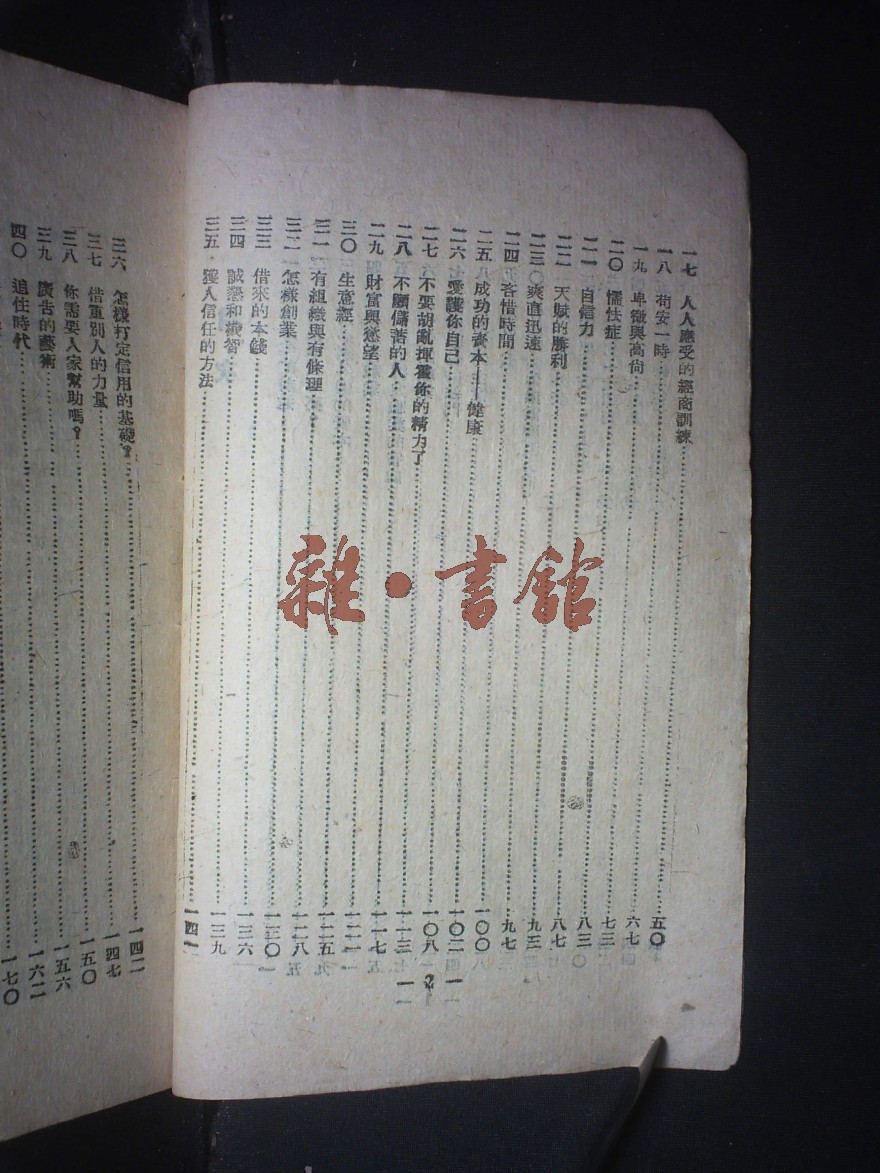 一七 人人應受的經商訓練
一八 苟安一時……五〇
一九 卑微與高尚……六七
二〇 懦怯症……七三
二一 自信力……八三
二二 天賦的勝利……八七
二三 爽直迅速……九三
二四 吝惜時間……九七
二五 成功的資本——健康……一〇〇
二六 愛護你自己……一〇二
二七 不要胡亂揮霍你的精力了……一〇八
二八 不願儲蓄的人……一一三
二九 財富與慾望……一一七
三〇 生意經……一二一
三一 有組織與有條理……一二五
三二 怎樣創業……一二八
三三 借來的本錢……一三〇
三四 誠懇和機智……一三六
三五 獲人信任的方法……一三九
一四一
2
三六 怎樣打定信用的基礎？……一四二
三七 借重別人的力量……一四七
三八 你需要人家幫助嗎？……一五〇
三九 的藝術……一五六
四〇 追住時代……一六二
一七〇
雜·書館